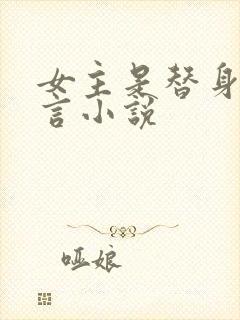 女主是替身
言小說
哑娘